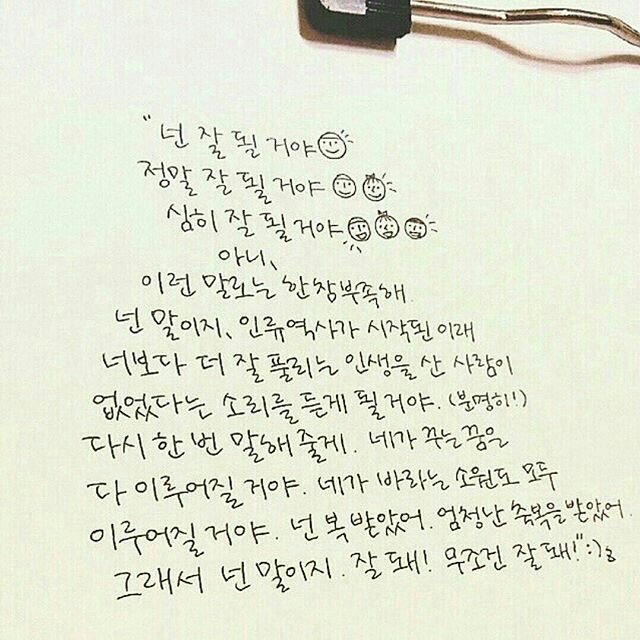 "넌 잘 될 거야
정말 잘 될 거야
심히 잘 될 거야
아니,
이런 말로는 한참부족해.
넌 말이지, 인류역사가 시작된 이래
너보다 더 잘 풀리는 인생을 산 사람이
없었다는 소리를 듣게 될거야. (분명히!)
다시 한 번 말해 줄게. 네가 꾸는꿈은
다 이루어질 거야. 네가 바라는 소원도 모두
이루어질 거야. 넌 복 받았어. 엄청난 축복을받았어.
그래서 넌 말이지. 잘 돼! 무조건 잘 돼!" :)